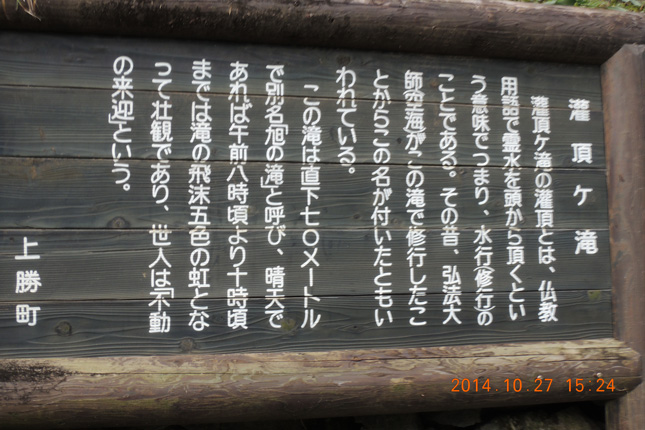 灌頂ケ滝
灌頂ケ滝の灌頂とは、仏教
用語で霊水を頭から頂くとい
う意味でつまり、水行(修行)の
ことである。その昔、弘法大
師空海がこの滝で修行したこ
とからこの名が付いたともい
われている。
この滝は直下七〇メートル
で別名「旭の滝」と呼び、晴天で
あれば午前八時頃より十時頃
までは滝の飛沫五色の虹とな
って壮観であり、世人は「不動
の来迎」という。
上勝町
2014.10.27 15:24